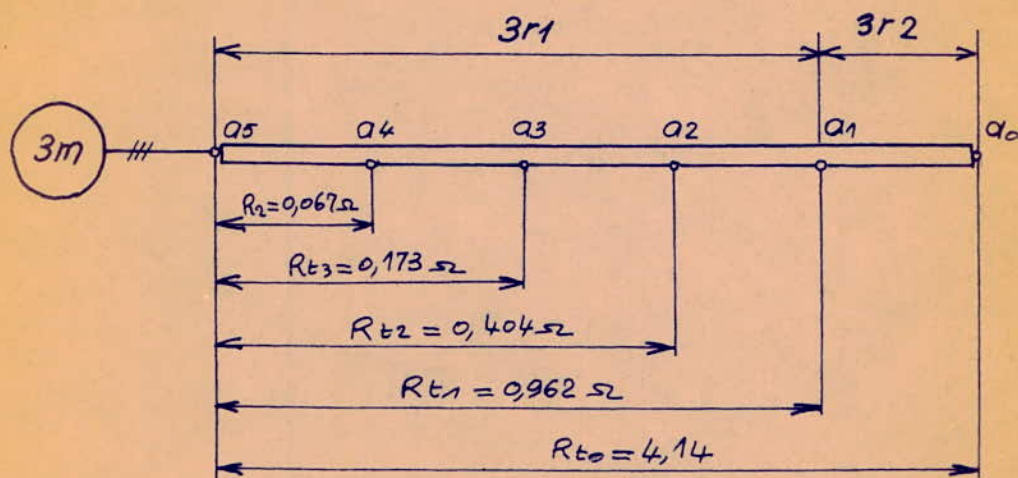 3r1 3r2
3m a5 a4 a3 a2 a1 a0
R2=0,067Ω
Rt3=0,173 Ω
Rt2 = 0,404 Ω
Rt1 = 0,962 Ω
Rt0 = 4,14